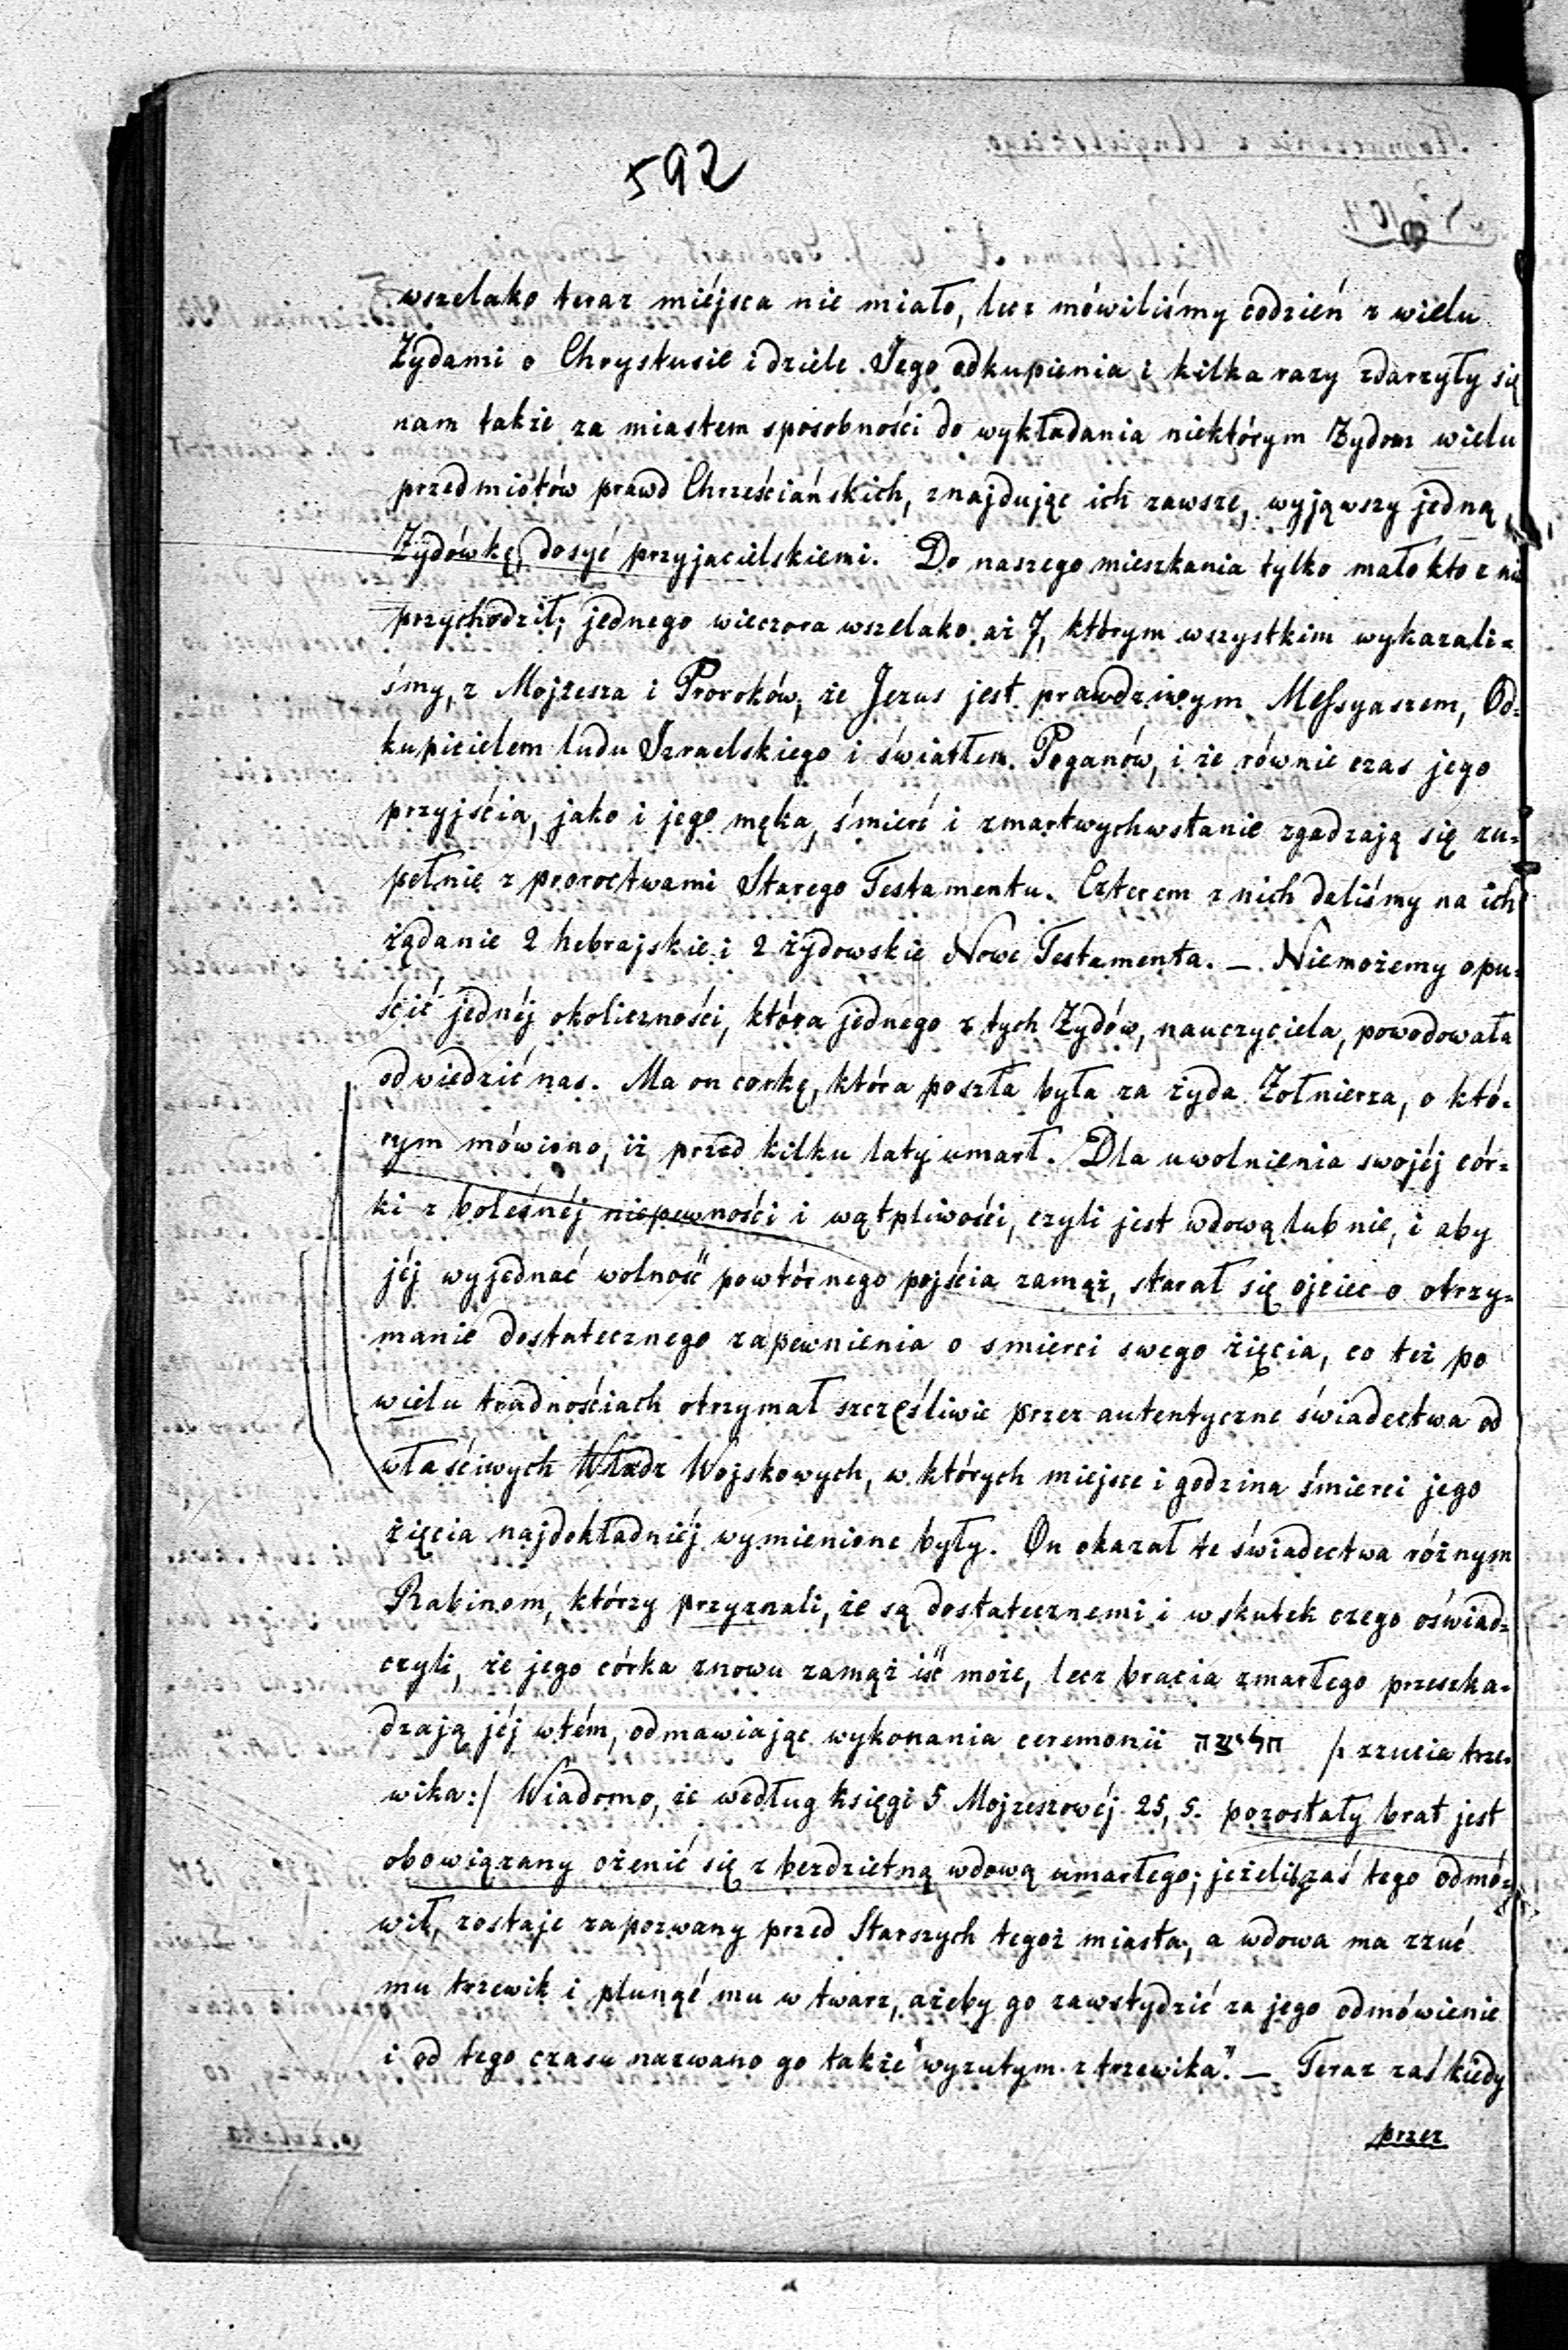 592
wszelako teraz miéjsca nie miało, lecz mówiliśmy codzień z wielu
Żydami o Chrystusie i dziele Jego odkupienia i kilka razy zdarzyły się
nam także za miastem sposobności do wykładania niektórym Żydom wielu
przedmiotów prawd Chrześciańskich, znajdując ich zawsze, wyjąwszy jedną
Żydówkę, dosyć przyjacielskiemi. Do naszego mieszkania tylko mało kto z ni
przychodził; jednego wieczora wszelako aż 7, którym wszystkim wykazali=
śmy, z Mojżesza i Proroków, że Jezus jest prawdziwym Messyaszem, Od=
kupicielem ludu Izraelskiego i światłem Poganów, i że równie czas jego
przyjścia, jako i jego męka, śmierć i zmartwychwstanie zgadzają się zu=
pełnie z proroctwami Starego Testamentu. Czterem z nich daliśmy na ich
żądanie 2 hebrajskie i 2 żydowskie Nowe Testamenta. — Niemożemy opu=
ścić jednéj okoliczności, która jednego z tych Żydów, nauczyciela, powodowała
odwiedzić nas. Ma on corkę, która poszła była za żyda Żołnierza, o któ=
rym mówiono, iż przed kilku laty umarł. Dla uwolnienia swojéj cór=
ki z boleśnéj niepewności i wątpliwości, czyli jest wdową lub nie, i aby
jéj wyjednać wolność powtórnego pojścia zamąż, starał się ojciec o otrzy=
manie dostatecznego zapewnienia o smierci swego zięcia, co też po
wielu trudnościach otrzymał szczęśliwie przez autentyczne świadectwa od
właściwych Władz Wojskowych, w których miejsce i godzina śmierci jego
zięcia najdokładniéj wymienione były. On okazał te świadectwa różnym
Rabinom, którzy przyznali, że są dostatecznemi i wskutek czego oświad=
czyli, że jego córka znowu zamąż iść może, lecz bracia zmarłego przeszka=
dzają jéj wtém, odmawiając wykonania ceremonii חליצה /: zzucia trze=
wika:/ Wiadomo, że według księgi 5 Mojżeszowéj 25, 5. pozostały brat jest
obowiązany ożenić się z bezdzietną wdową umarłego; jeżeliby zaś tego odmó=
wił, zostaje zapozwany przed Starszych tegoż miasta, a wdowa ma zzuć
mu trzewik i plunąć mu w twarz, ażeby go zawstydzić za jego odmówienie
i od tego czasu nazwano go także "wyzutym z trzewika". — Teraz zaś kiedy
przez